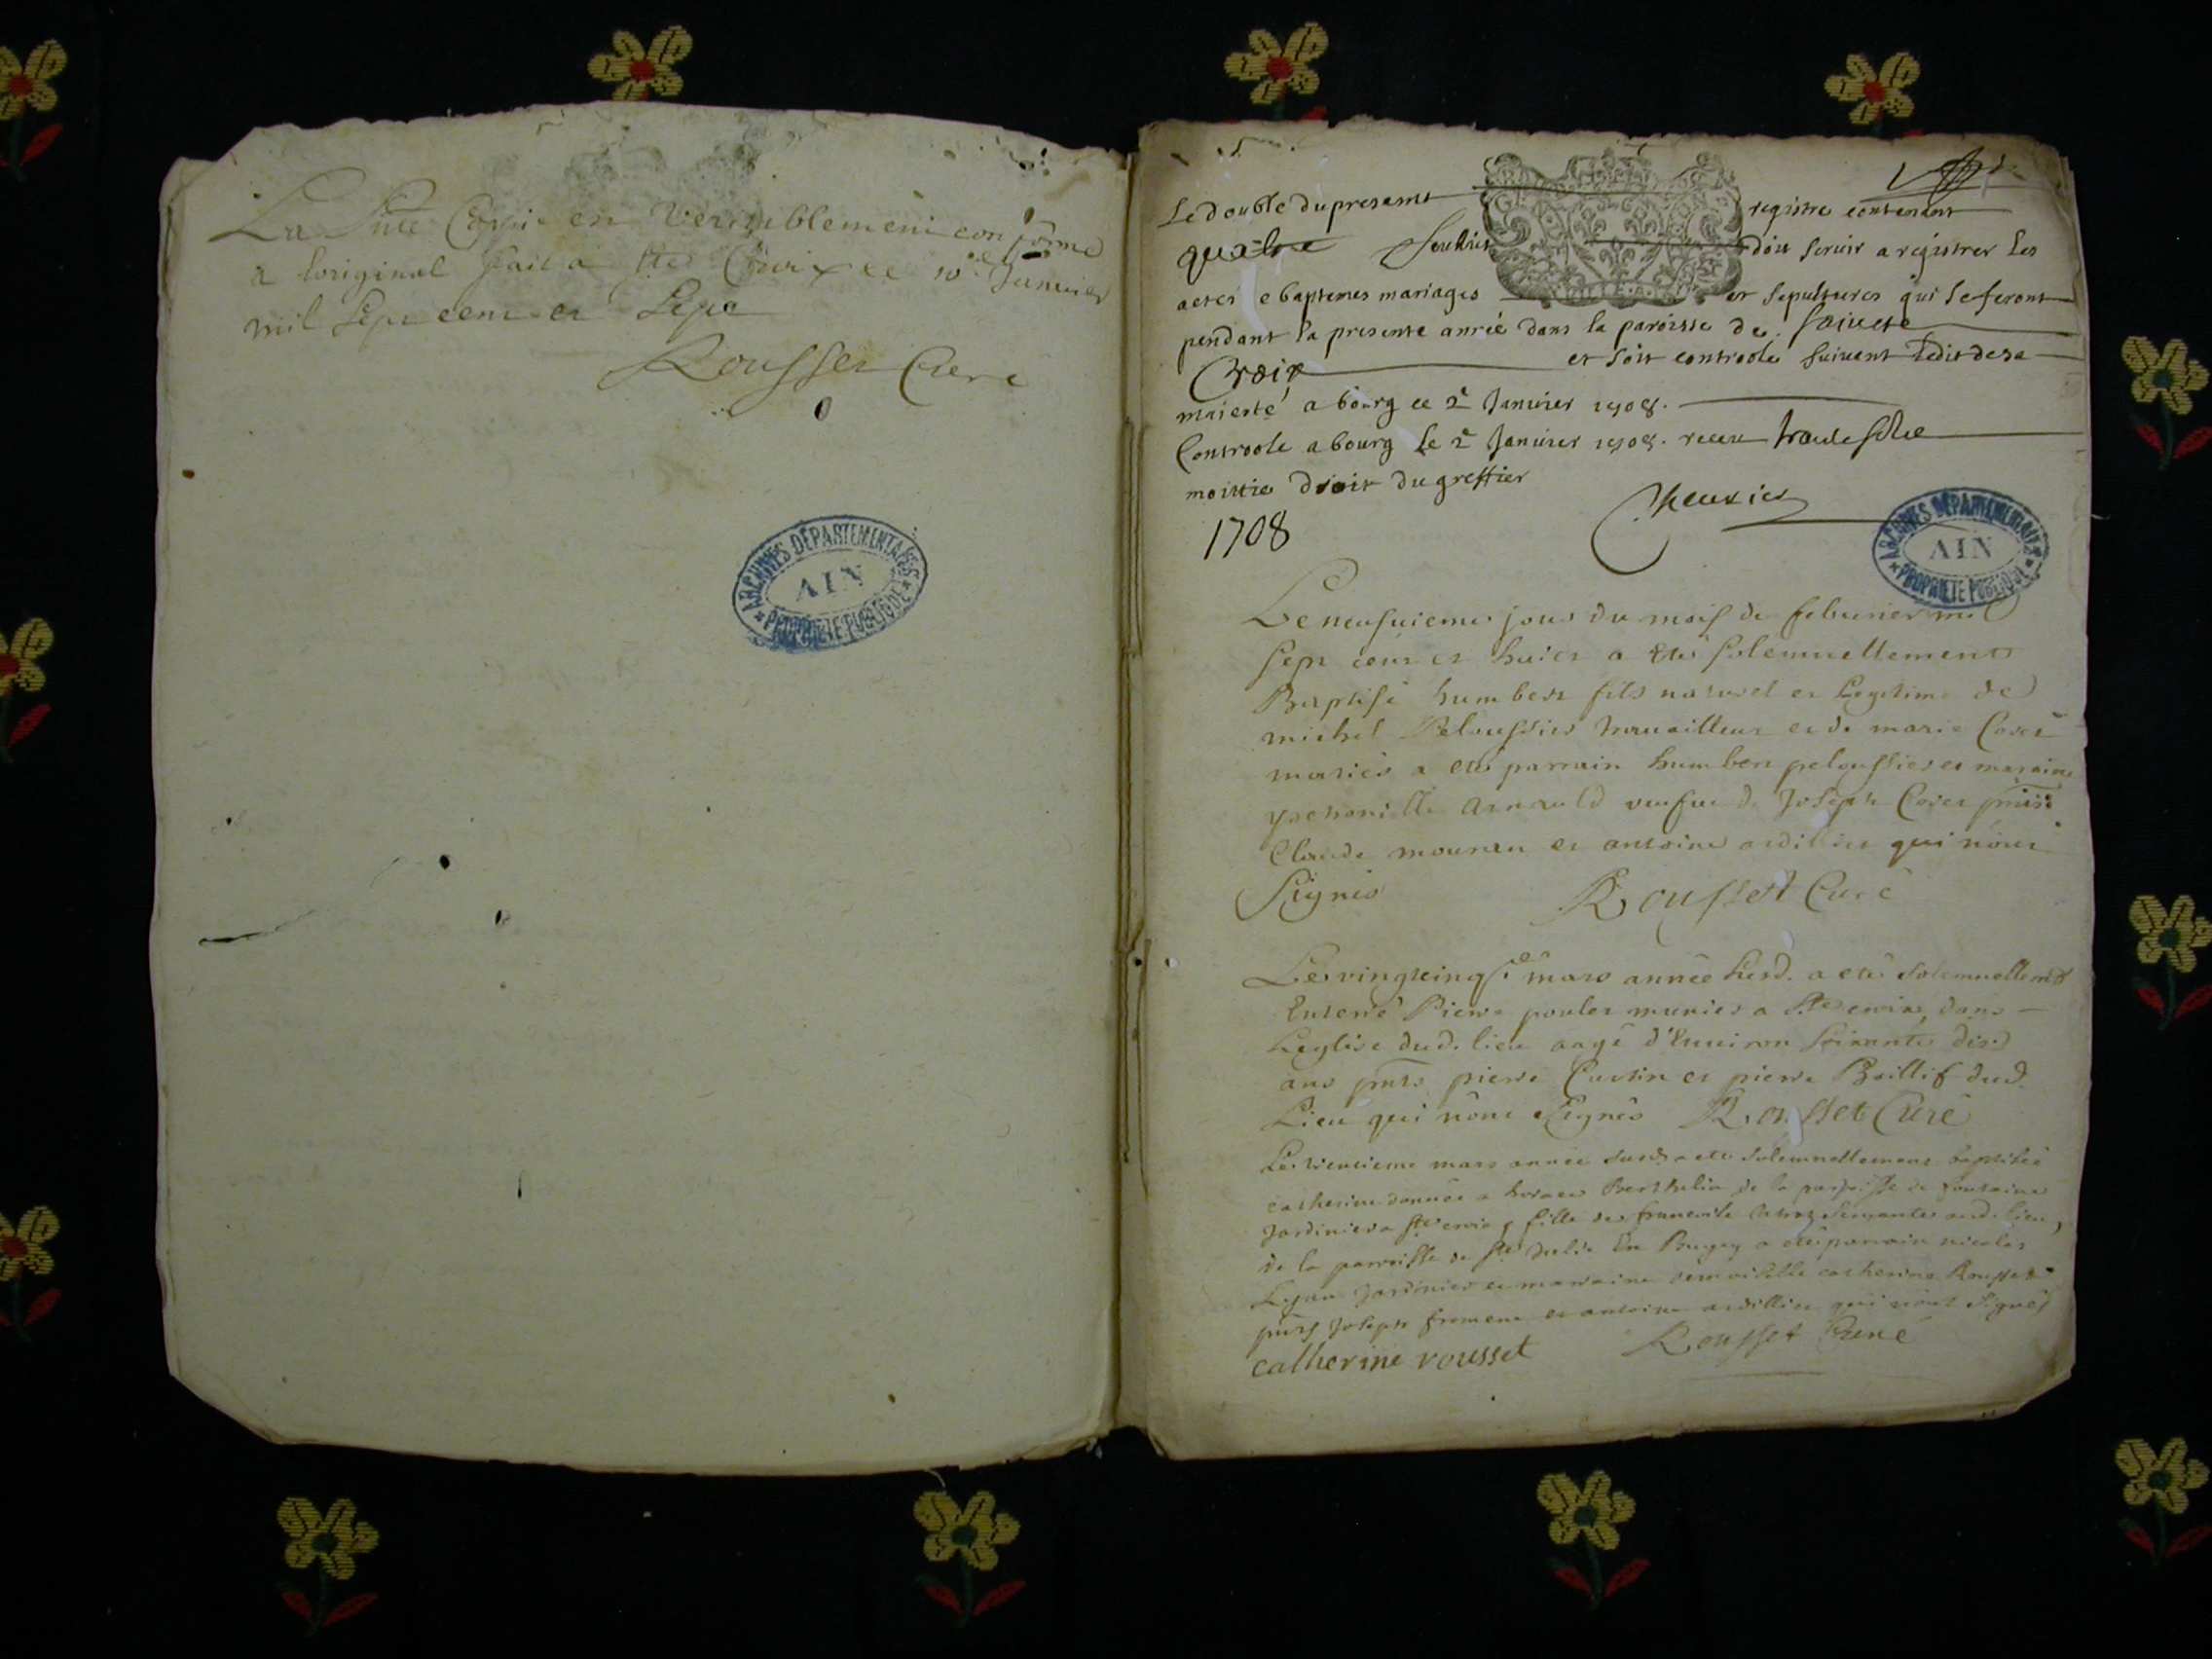 La pnte Copie est veritablement conforme
a loriginal fait a Ste Croix ce 10e Janvier
mil sept cent et sept
Rousset Curé
ARCHIVES DEPARTEMENTALES
AIN
PROPRIETE PUBLIQUE
Le double du present registre contenant
quatre feuillets doit servir a registrer les
actes e baptemes mariages et sepultures qui se feront
pendant la presente année dans la paroisse de saincte
Croix et soit controole suivant ledit de sa
majesté a bourg ce 2e Janvier 1708.
Controole a bourg le 2e Janvier 1708. receu
moittie droit du greffier
1708
ARCHIVES DEPARTEMENTALES
AIN
PROPRIETE PUBLIQUE
Le neufuieme jour du mois de febvrier mil
sept cent et huict a eté solemnellement
Baptisé humbert fils naturel et legitime de
michel Peloussier travailleur et de marie Coset
mariés a eté parrain humbert peloussier et maraine
arnauld veufue de Joseph Coset pnts
Claude mounau et antoine ardillier qui n'ont
signés Rousset Curé
Le vingt cinq mars année susd. a eté solemnellemt
Enterré Pierre poulet munier a Ste croix, dans
Leglise dud. lieu aagé d'Environ soixante dix
ans pnts pierre Curtin et pierre Baillif dud.
Lieu qui n'ont signés Rousset Curé
Le trentieme mars année susd. a eté solemnellement baptisée
catherine donnée a Berthelin de la parroisse de fontaine
Jardinier a Ste croix, fille de servante aud. lieu,
de la parroisse de Ste Julie En Bugey a eté parrain nicolas
Jardinier et marraine demoiselle catherine Rousset
pnts Joseph froment et antoine ardillier qui n'ont signés
catherine rousset Rousset Curé